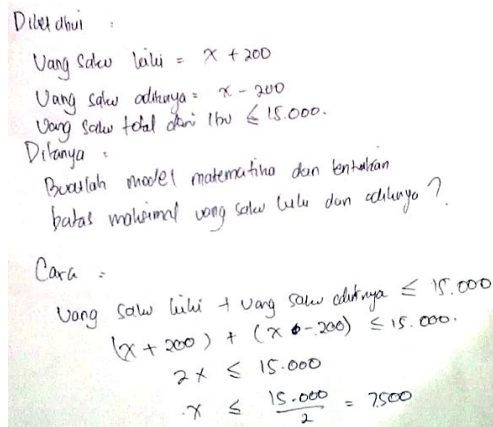 Diketahui :
Uang saku lulu = x + 200
Uang saku adiknya = x - 200
Uang saku total dari Ibu ≤ 15.000.
Ditanya :
Buatlah model matematika dan tentukan
batas maksimal uang saku lulu dan adiknya ?
Cara :
Uang saku lulu + uang saku adiknya ≤ 15.000
(x + 200) + (x - 200) ≤ 15.000.
2x ≤ 15.000
x ≤ 15.000 / 2 = 7500